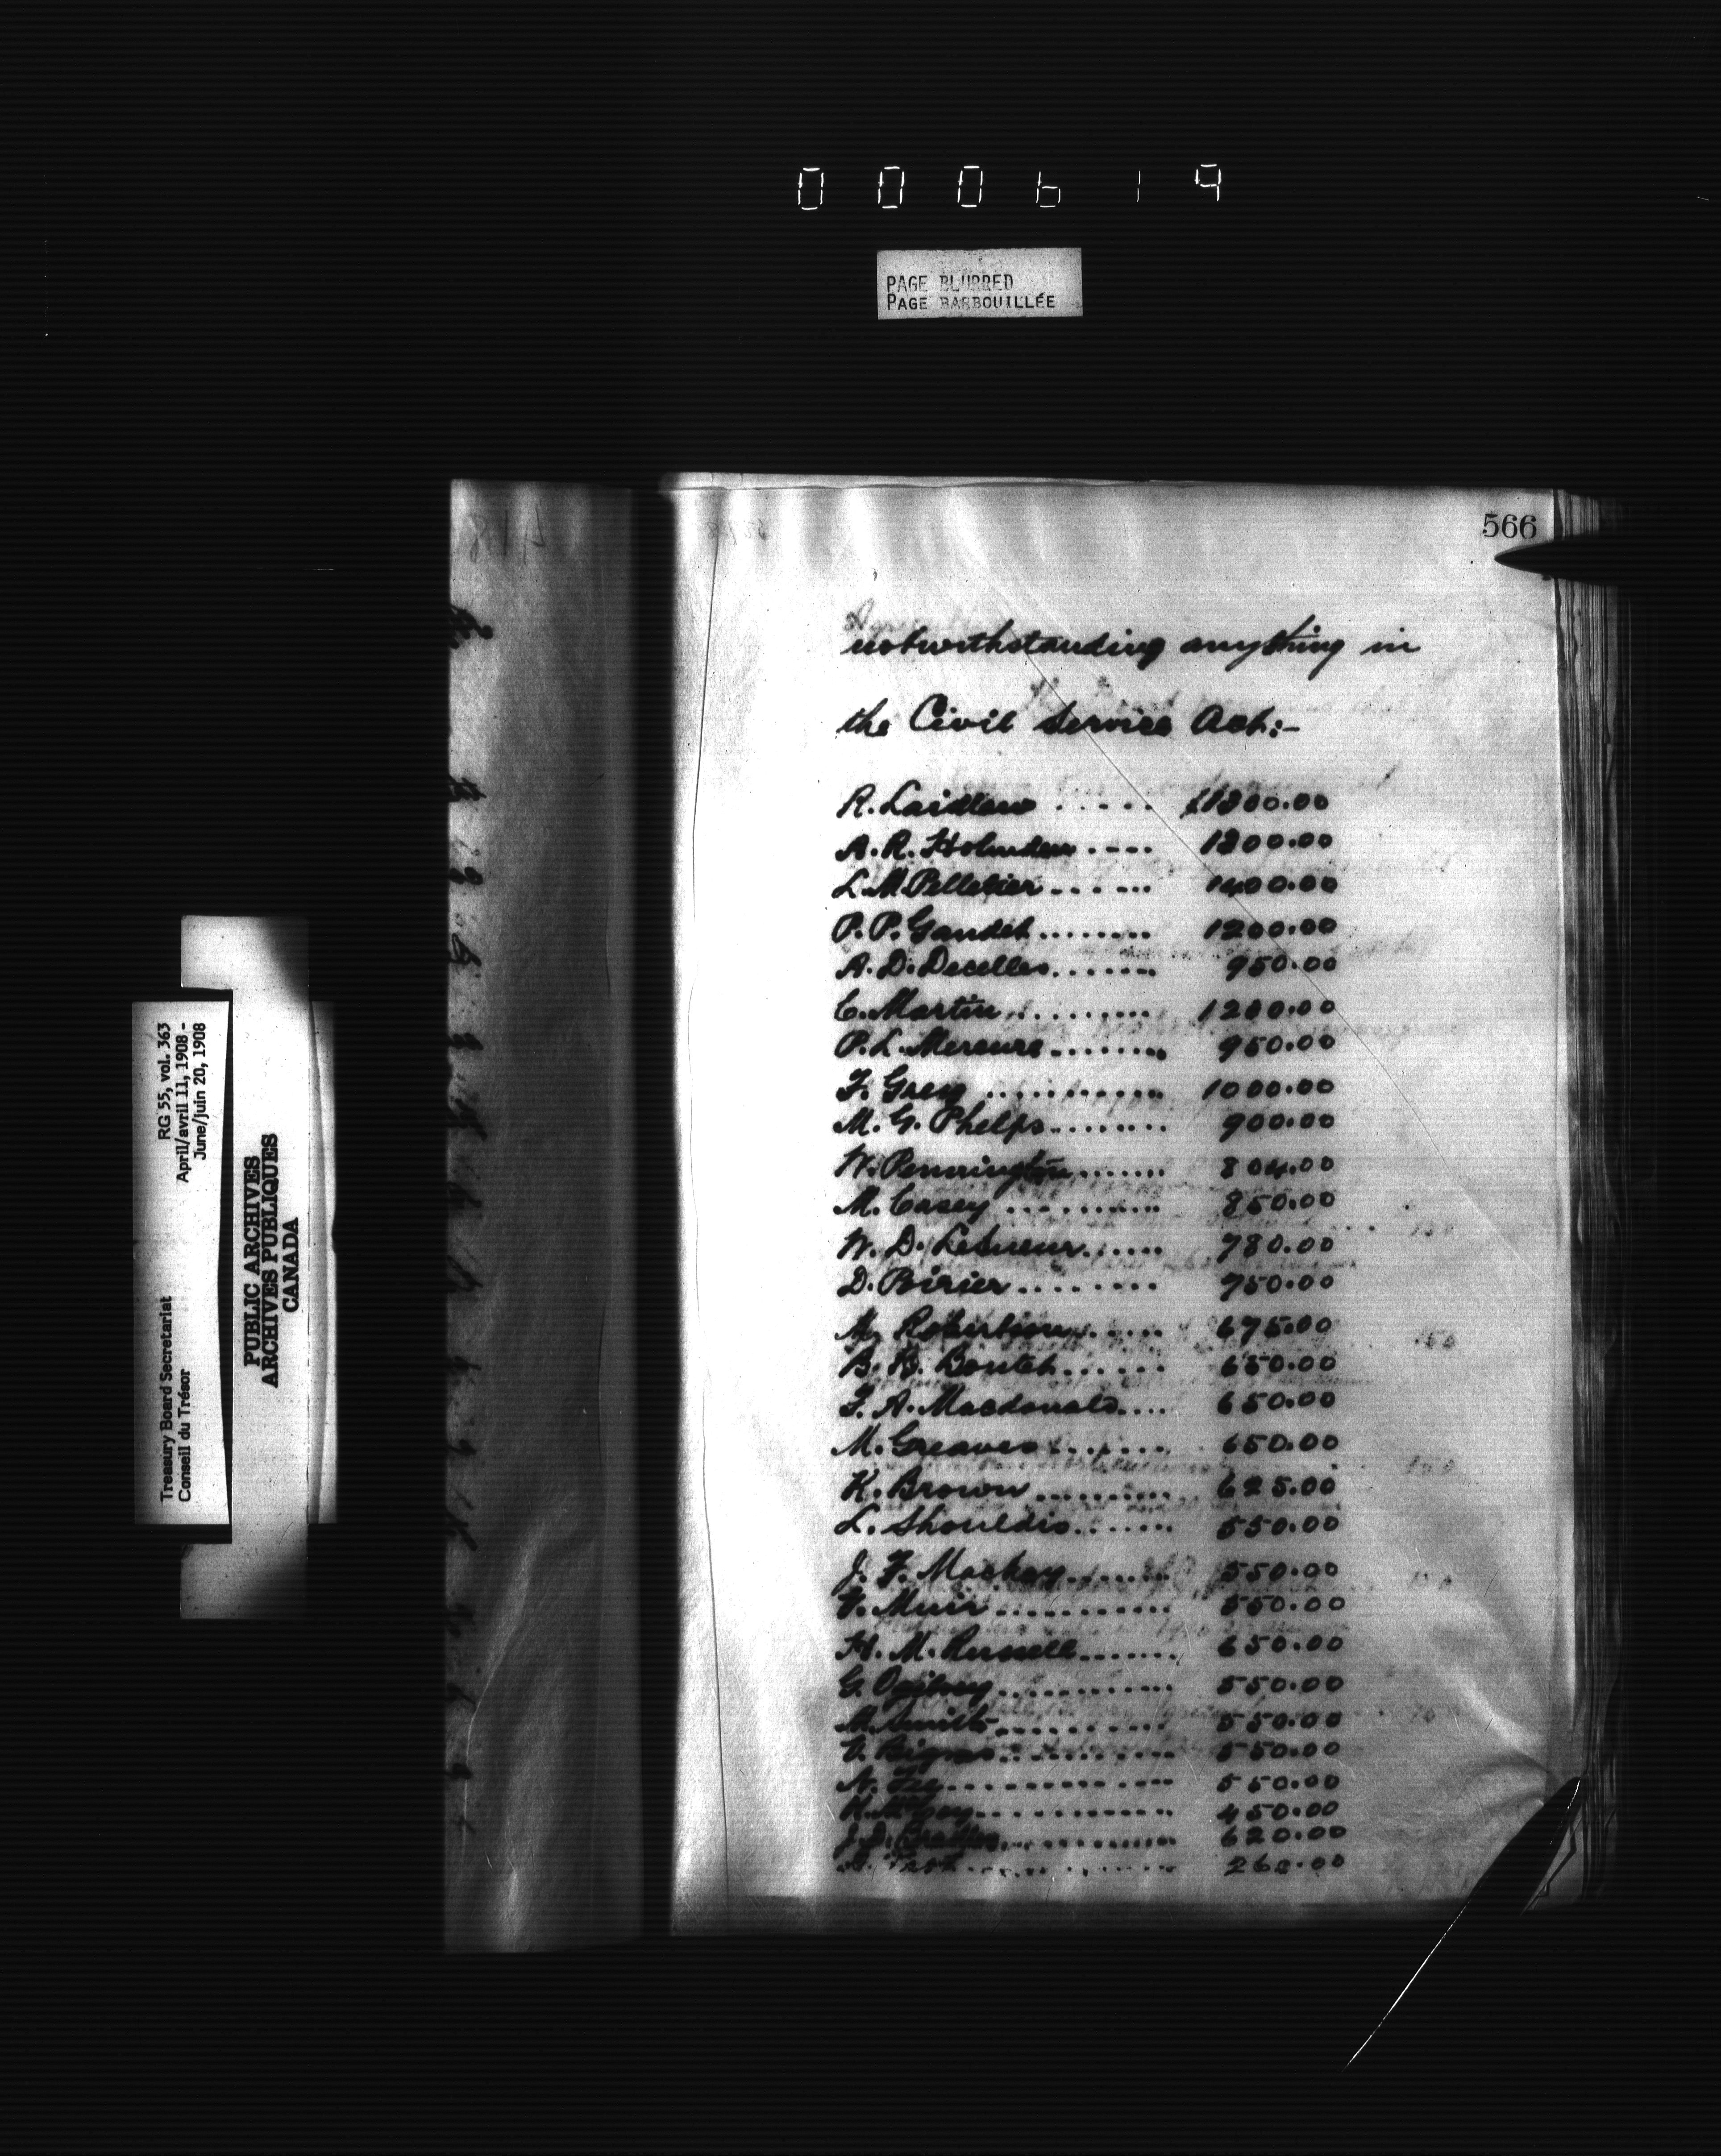 000619
PAGE BLURRED
PAGE BARBOUILLÉE
566
notwithstanding anything in
the Civil Service Act:-
R. Laidlaw ..... $1300.00
A. R. Holmden .... 1300.00
L. M. Pelletier ...... 1400.00
P. P. Gaudet ........ 1200.00
A. D. Decelles ....... 950.00
C. Martin .......... 1200.00
P. L. Mercure ........ 950.00
F. Grey ............ 1000.00
M. G. Phelps ........ 900.00
W. Pennington ....... 804.00
M. Casey .......... 850.00
W. D. LeSueur ...... 780.00
D. Poirier ........ 750.00
M. Robertson ..... 675.00
B. Boutet ...... 650.00
F. A. Macdonald .... 650.00
M. Greaves ....... 650.00
K. Brown .......... 625.00
L. Shouldis ....... 550.00
J. F. Mackay ....... 550.00
V. Muir ........... 550.00
H. M. Russell ....... 650.00
G. Ogilvey ........... 550.00
M. Smith .......... 550.00
V. Bigras .......... 550.00
N. Fee ............ 550.00
............ 450.00
J. D. ............. 620.00
............ 260.00
Treasury Board Secretariat RG 55, vol. 363
Conseil du Trésor April/avril 11, 1908 -
June/juin 20, 1908
PUBLIC ARCHIVES
ARCHIVES PUBLIQUES
CANADA